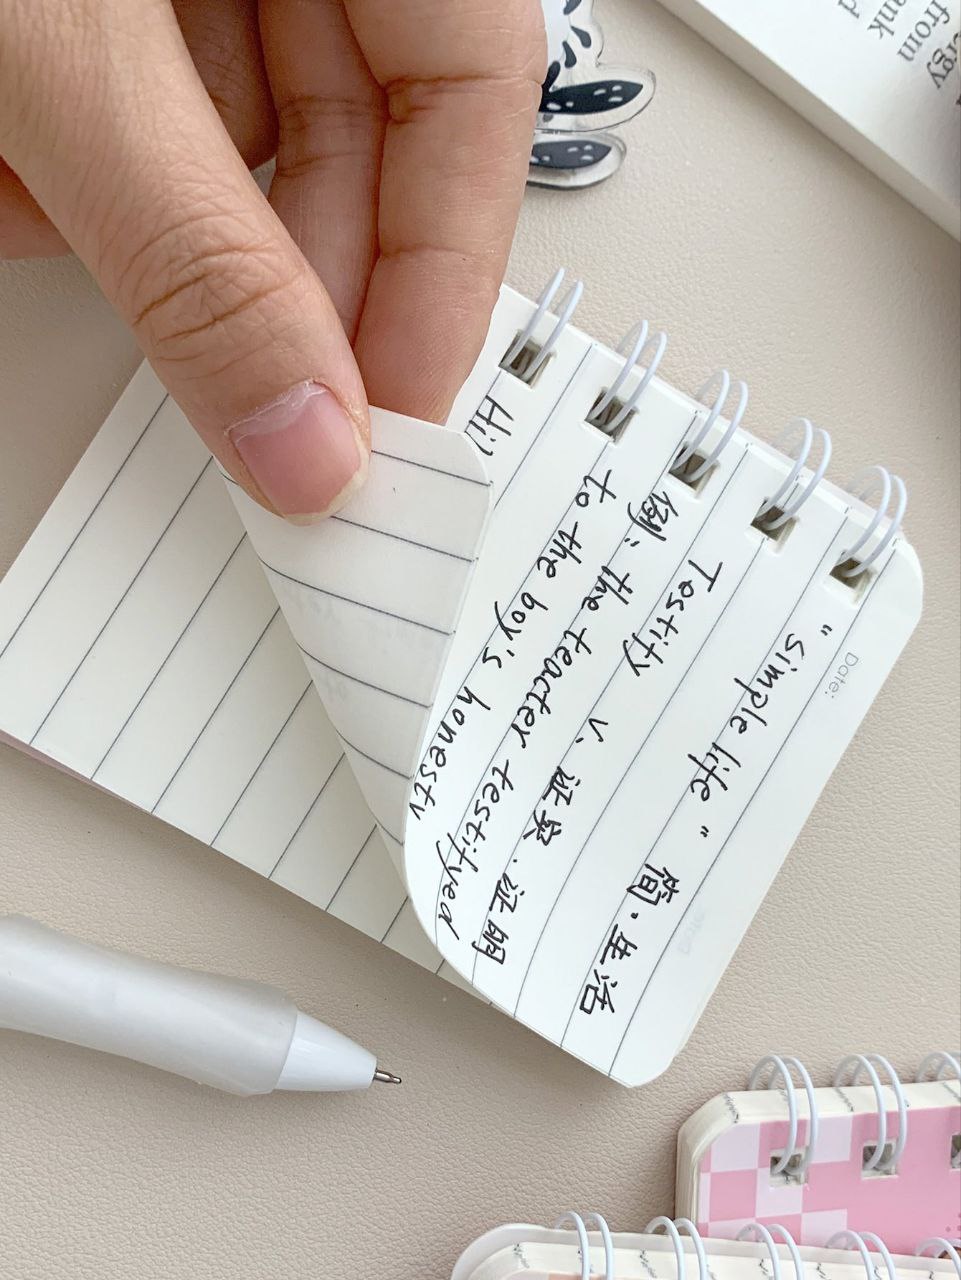 Date:
"simple life" 简·生活
Testify v、证实.证明
例: the teacter testifyed
to the boy's honesty
from